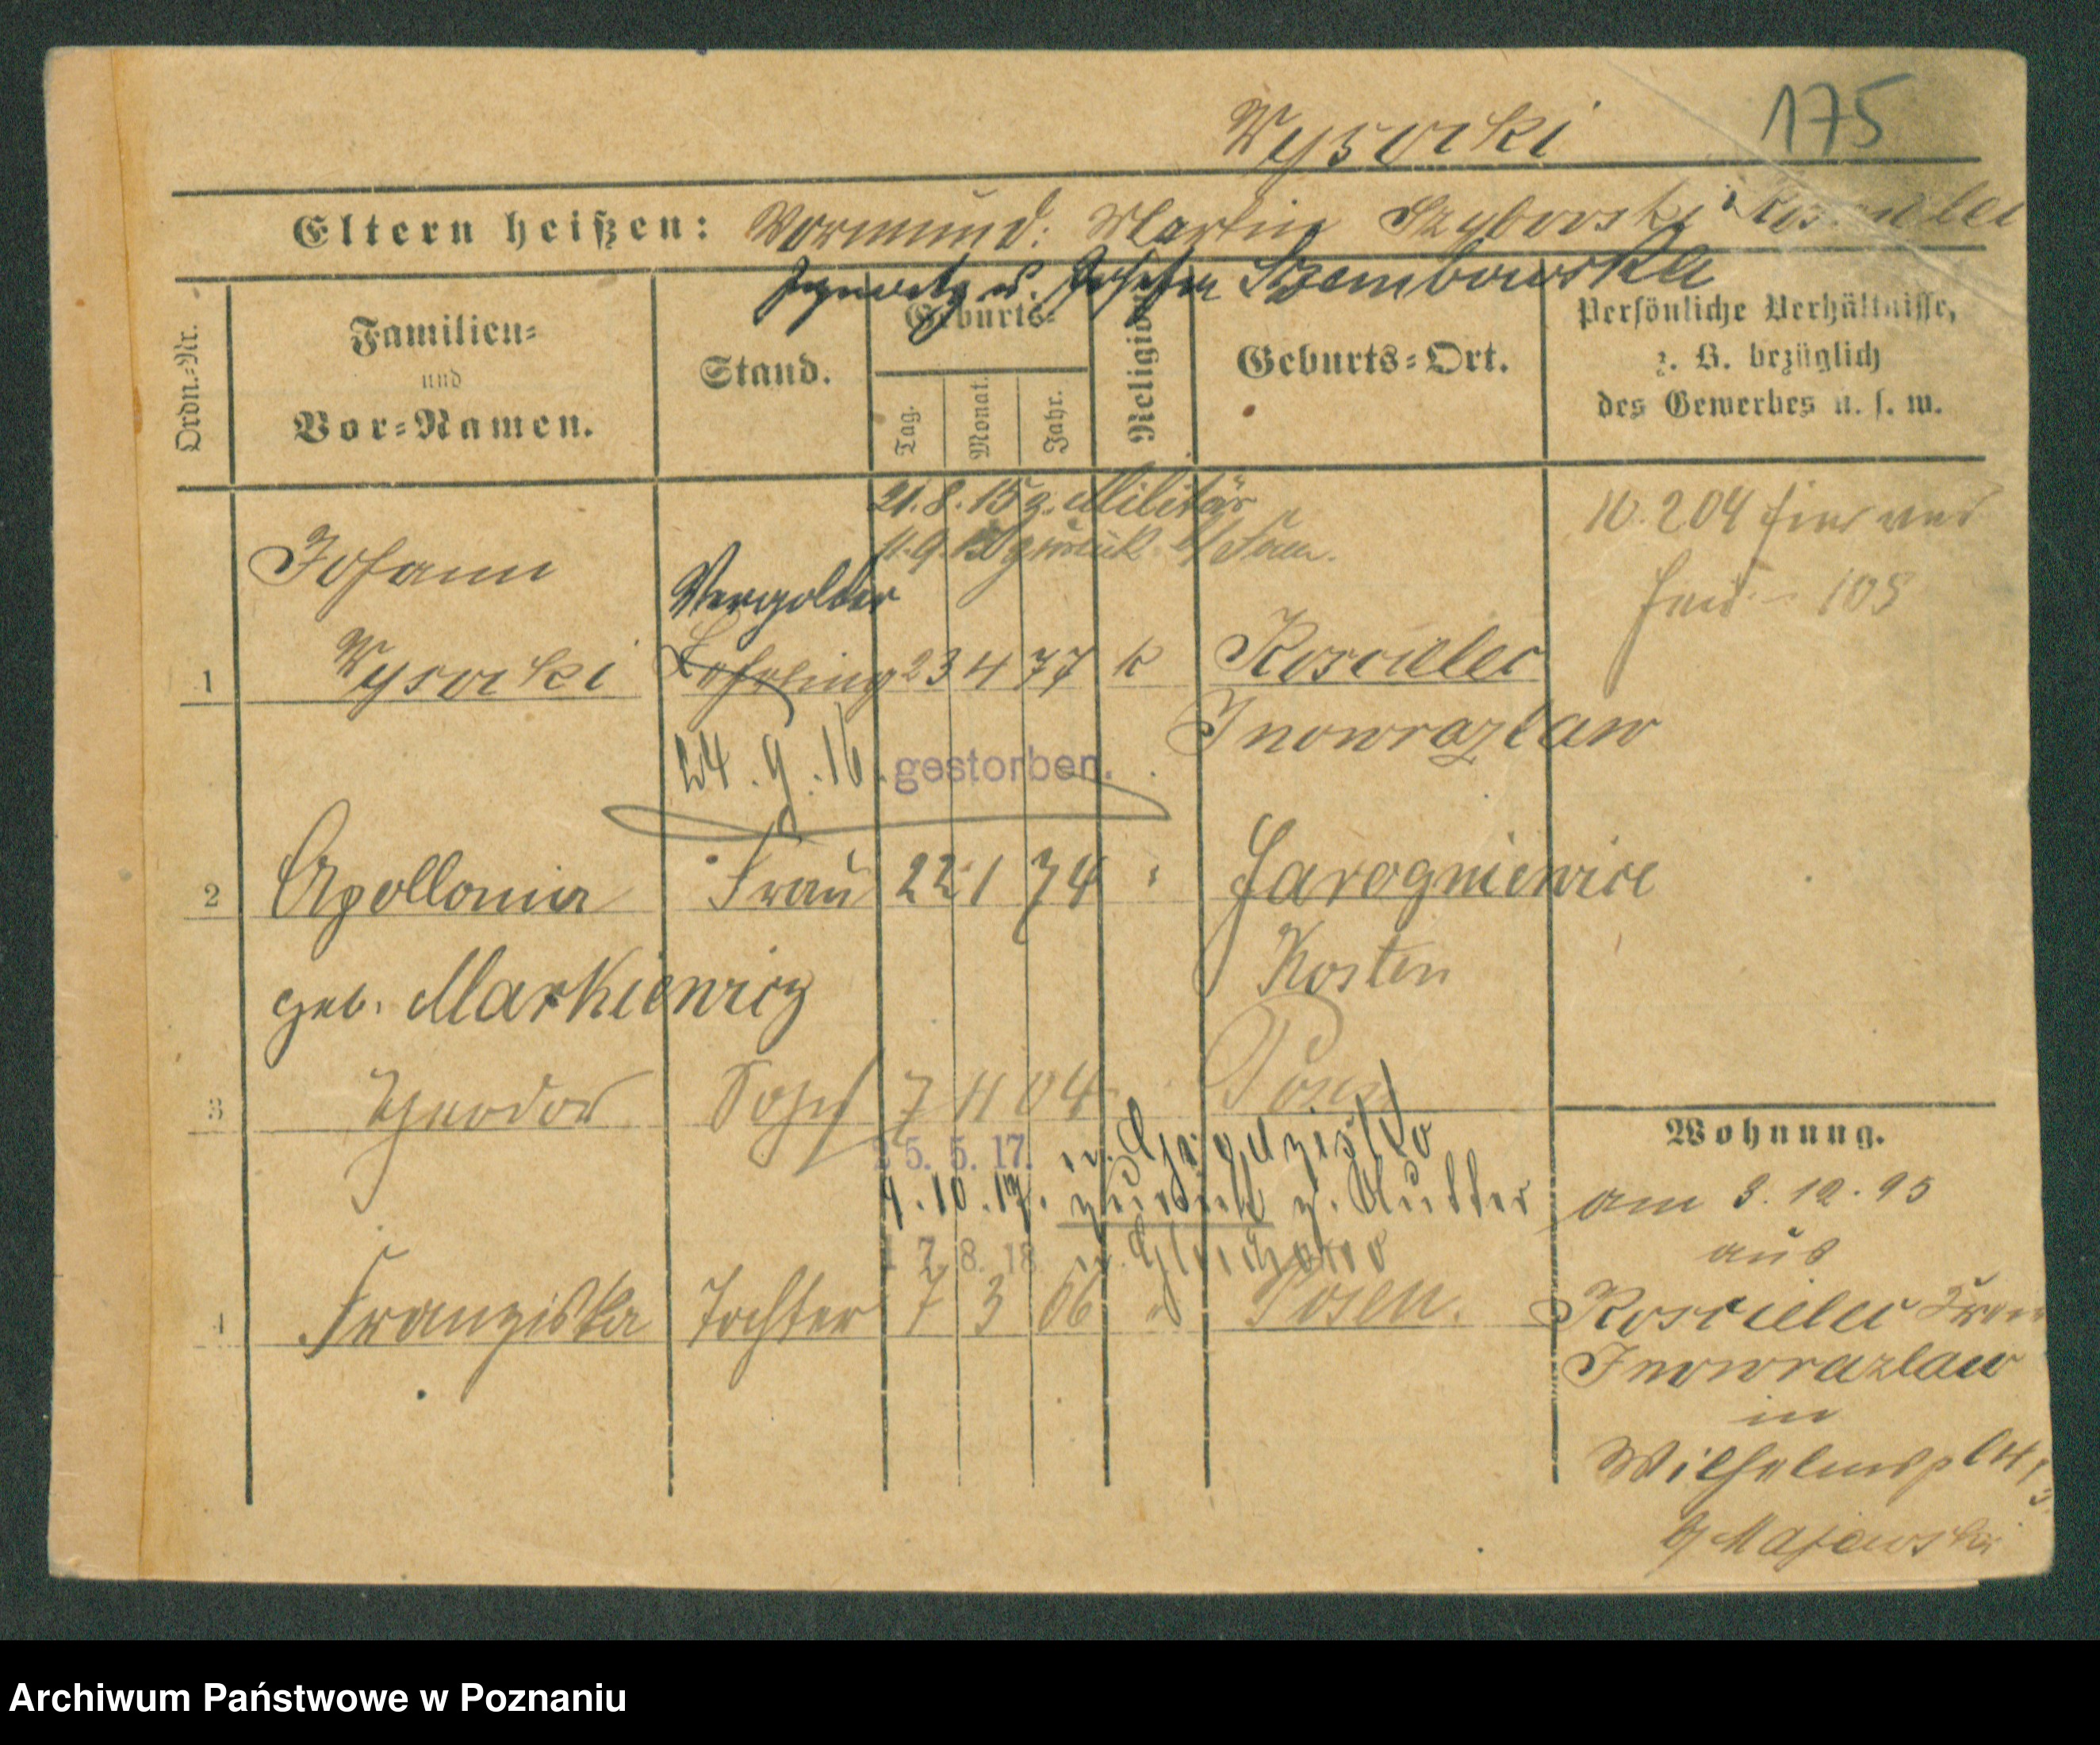 Wysocki 175
Eltern heißen: Vormund: Martin Szyborski Koscielec
Ignatz u. Josefa Szembowska
Ordn.-Nr.
Familien-
und
Vor-Namen.
Stand.
Geburts-
Tag.
Monat.
Jahr.
Religion
Geburts-Ort.
Persönliche Verhältnisse,
z. B. bezüglich
des Gewerbes u. s. w.
21.8.15 z. Militär
11.9.15 zurück
Johann
Vergolder
1 Wysocki Lehrling 23 4 77 k Koscielec
Inowrazlaw
24.9.16. gestorben.
2 Apollonia Frau 22 1 74 " Jarogniewice
geb. Markiewicz Kosten
3 Theodor Sohn 7 11 04 Posen
25. 5. 17.
4.10.17. zurück z. Mutter
17. 8. 18
4 Franziska Tochter 7 3 06 " Posen.
Wohnung.
am 3.10.95
aus
Koscielec
Inowrazlaw
in
Wilhelmspl
Majewski
Archiwum Państwowe w Poznaniu